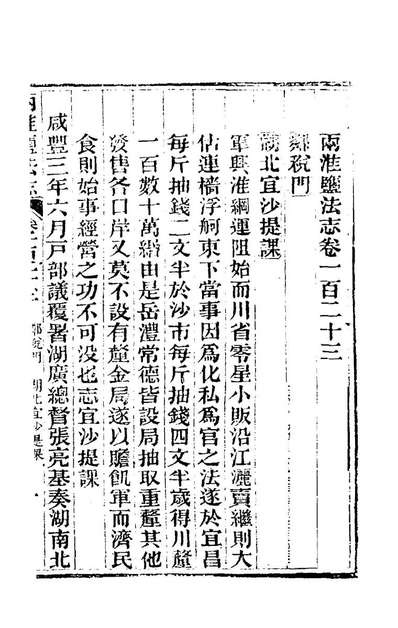 兩淮鹽法志卷一百二十三
鄰稅門
湖北宜沙提課
軍興淮綱運阻始而川省零星小販沿江灑賣繼則大
估連檣浮舸東下當事因爲化私爲官之法遂於宜昌
每斤抽錢二文半於沙市每斤抽錢四文半歲得川釐
一百數十萬緡由是岳澧常德皆設局抽取重釐其他
發售各口岸又莫不設有釐金局遂以贍飢軍而濟民
食則始事經營之功不可沒也志宜沙提課
咸豐三年六月戶部議覆署湖廣總督張亮基奏湖南北
兩淮鹽法志 卷一百二十三 鄰稅門 湖北宜沙提課 一